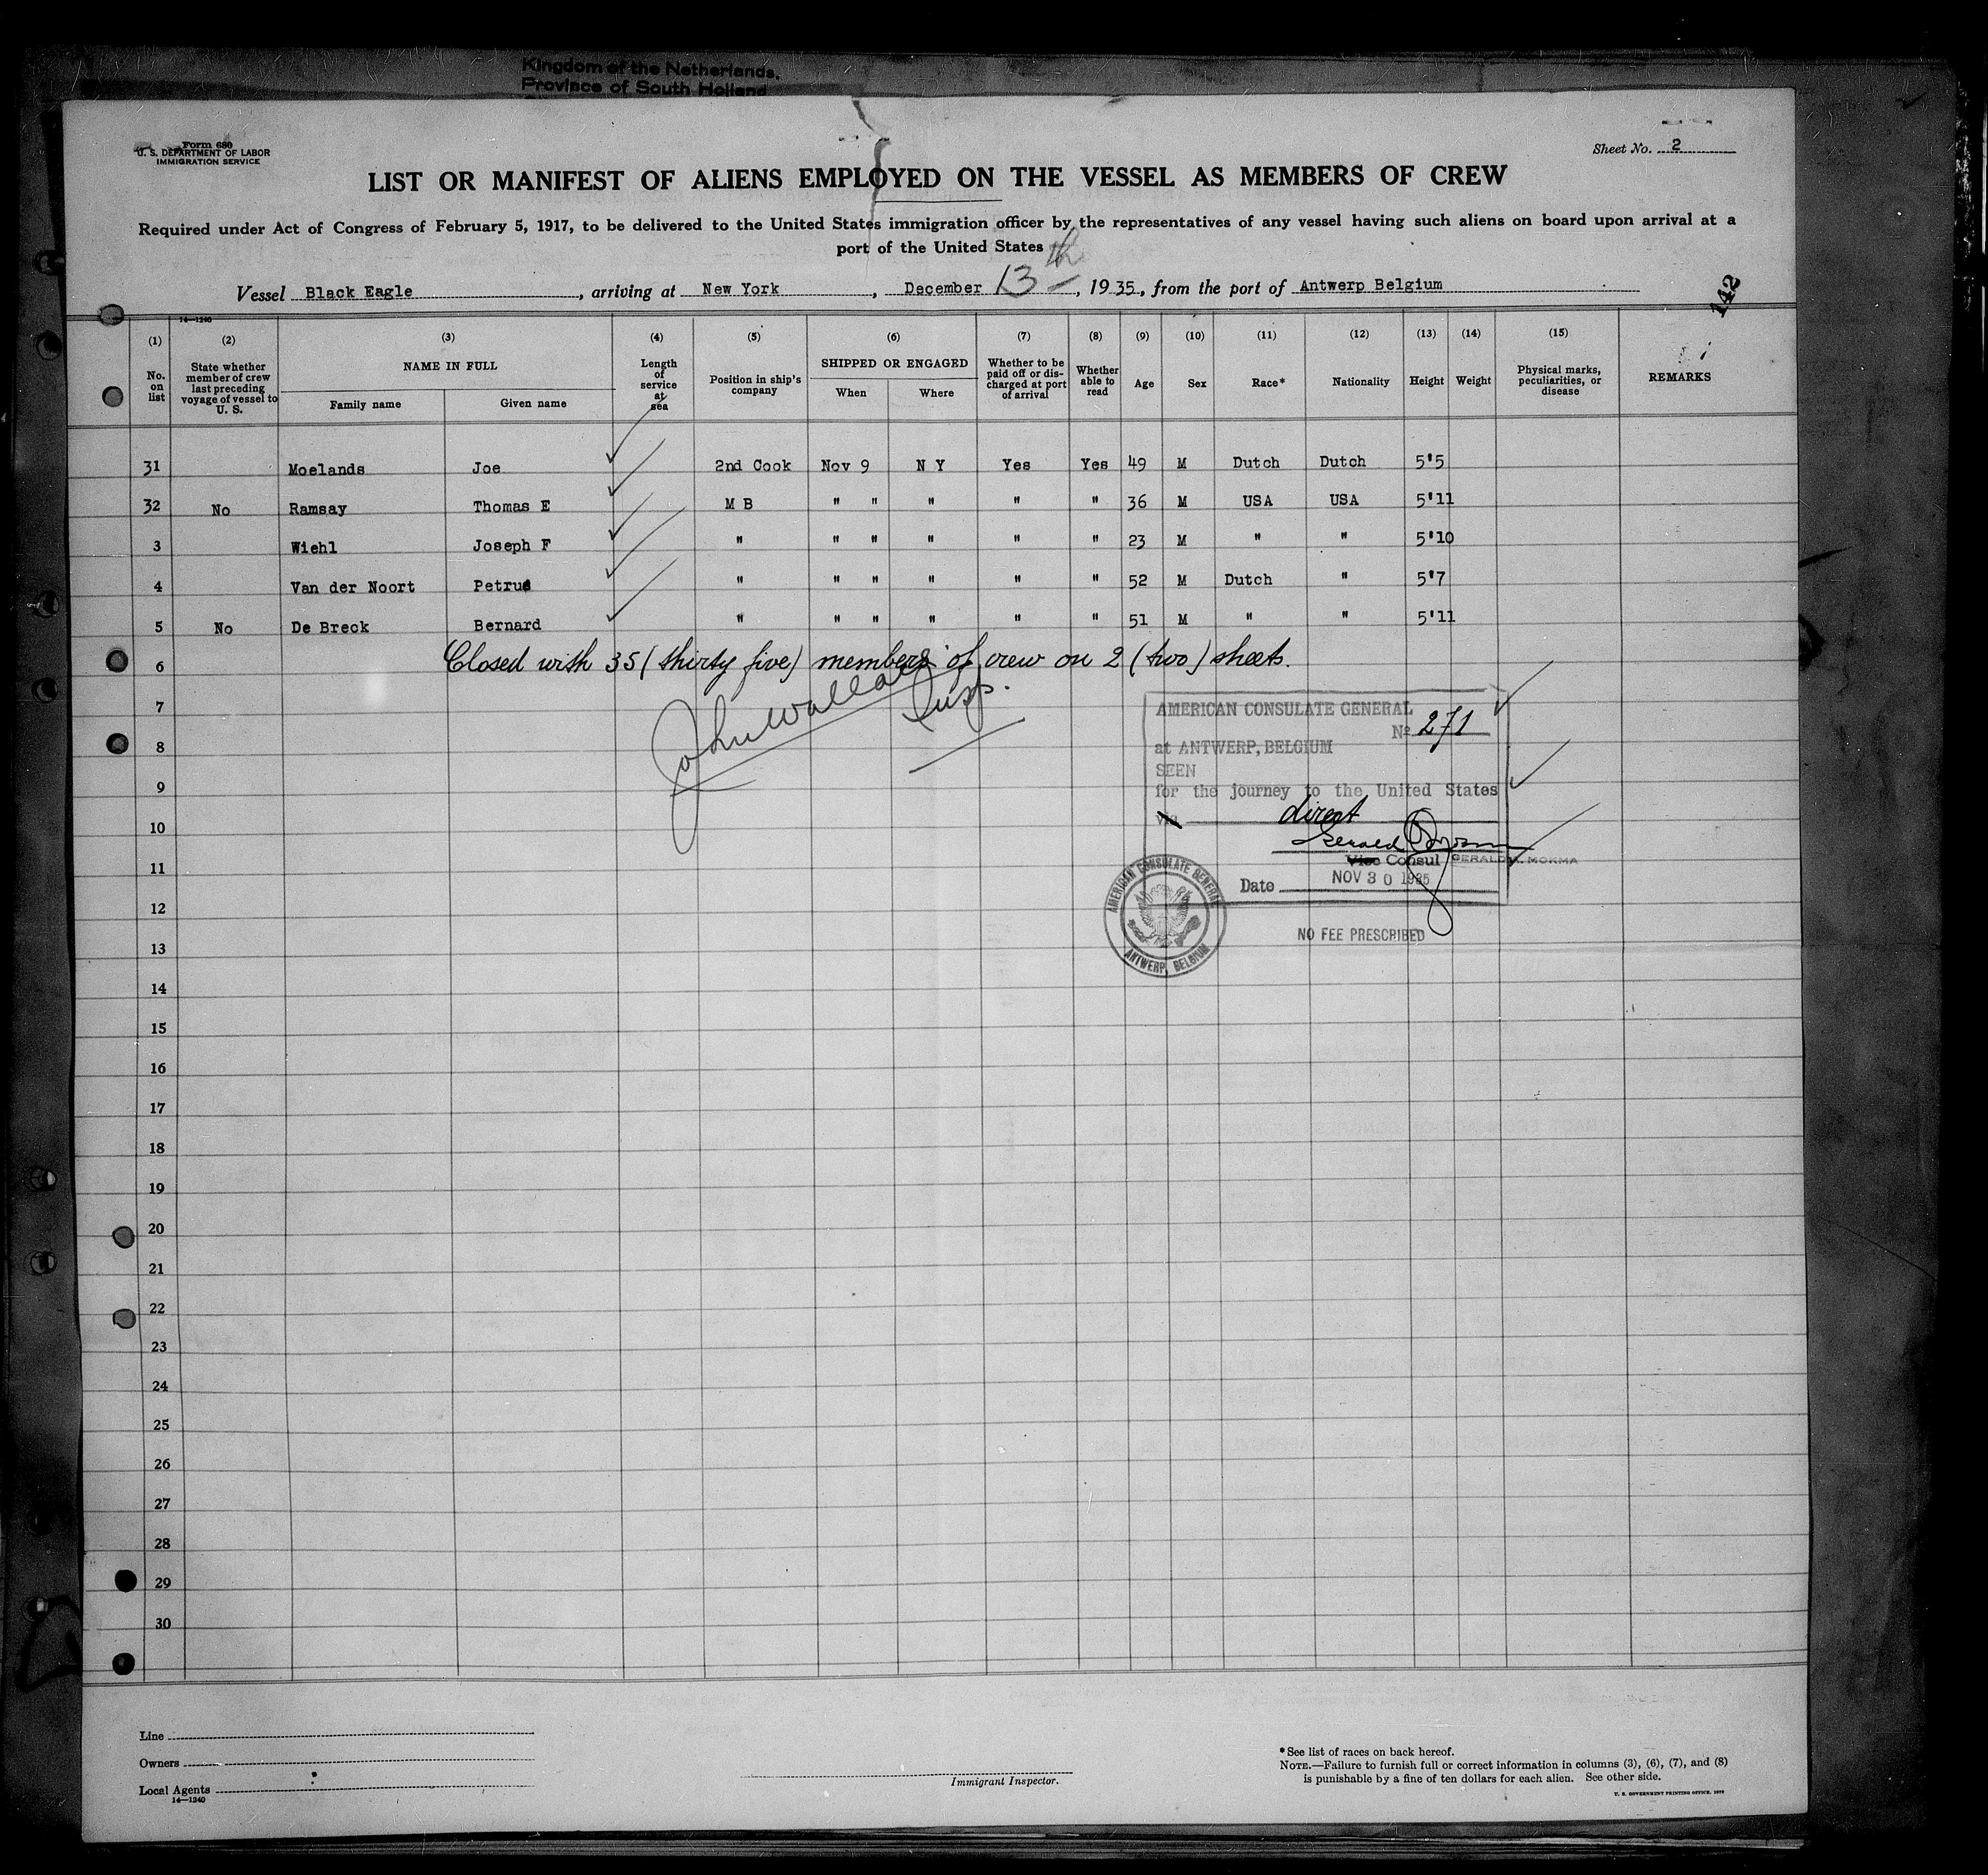 Kingdom of the Netherlands,
Province of South Holland
Form 680
U. S. DEPARTMENT OF LABOR
IMMIGRATION SERVICE
Sheet No. 2
LIST OR MANIFEST OF ALIENS EMPLOYED ON THE VESSEL AS MEMBERS OF CREW
Required under Act of Congress of February 5, 1917, to be delivered to the United States immigration officer by the representatives of any vessel having such aliens on board upon arrival at a
port of the United States
Vessel Black Eagle, arriving at New York, December 13th, 1935, from the port of Antwerp Belgium
142
14—1240
(1) (2) (3) (4) (5) (6) (7) (8) (9) (10) (11) (12) (13) (14) (15)
No. on list
State whether member of crew last preceding voyage of vessel to U. S.
NAME IN FULL
Family name Given name
Length of service at sea
Position in ship's company
SHIPPED OR ENGAGED
When Where
Whether to be paid off or discharged at port of arrival
Whether able to read
Age Sex Race* Nationality Height Weight
Physical marks, peculiarities, or disease
REMARKS
31 Moelands Joe 2nd Cook Nov 9 N Y Yes Yes 49 M Dutch Dutch 5'5
32 No Ramsay Thomas E M B " " " " " 36 M USA USA 5'11
3 Wiehl Joseph F " " " " " " 23 M " " 5'10
4 Van der Noort Petrus " " " " " " 52 M Dutch " 5'7
5 No De Breck Bernard " " " " " " 51 M " " 5'11
6 Closed with 35 (thirty five) members of crew on 2 (two) sheets.
John Wallace
Insp.
AMERICAN CONSULATE GENERAL
No 271
at ANTWERP, BELGIUM
SEEN
for the journey to the United States
via direct
Vice Consul GERALD M. MOKMA
Date NOV 30 1935
AMERICAN CONSULATE GENERAL
ANTWERP, BELGIUM
NO FEE PRESCRIBED
7
8
9
10
11
12
13
14
15
16
17
18
19
20
21
22
23
24
25
26
27
28
29
30
Line
Owners
Local Agents
14—1240
Immigrant Inspector.
*See list of races on back hereof.
NOTE.—Failure to furnish full or correct information in columns (3), (6), (7), and (8)
is punishable by a fine of ten dollars for each alien. See other side.
U. S. GOVERNMENT PRINTING OFFICE.